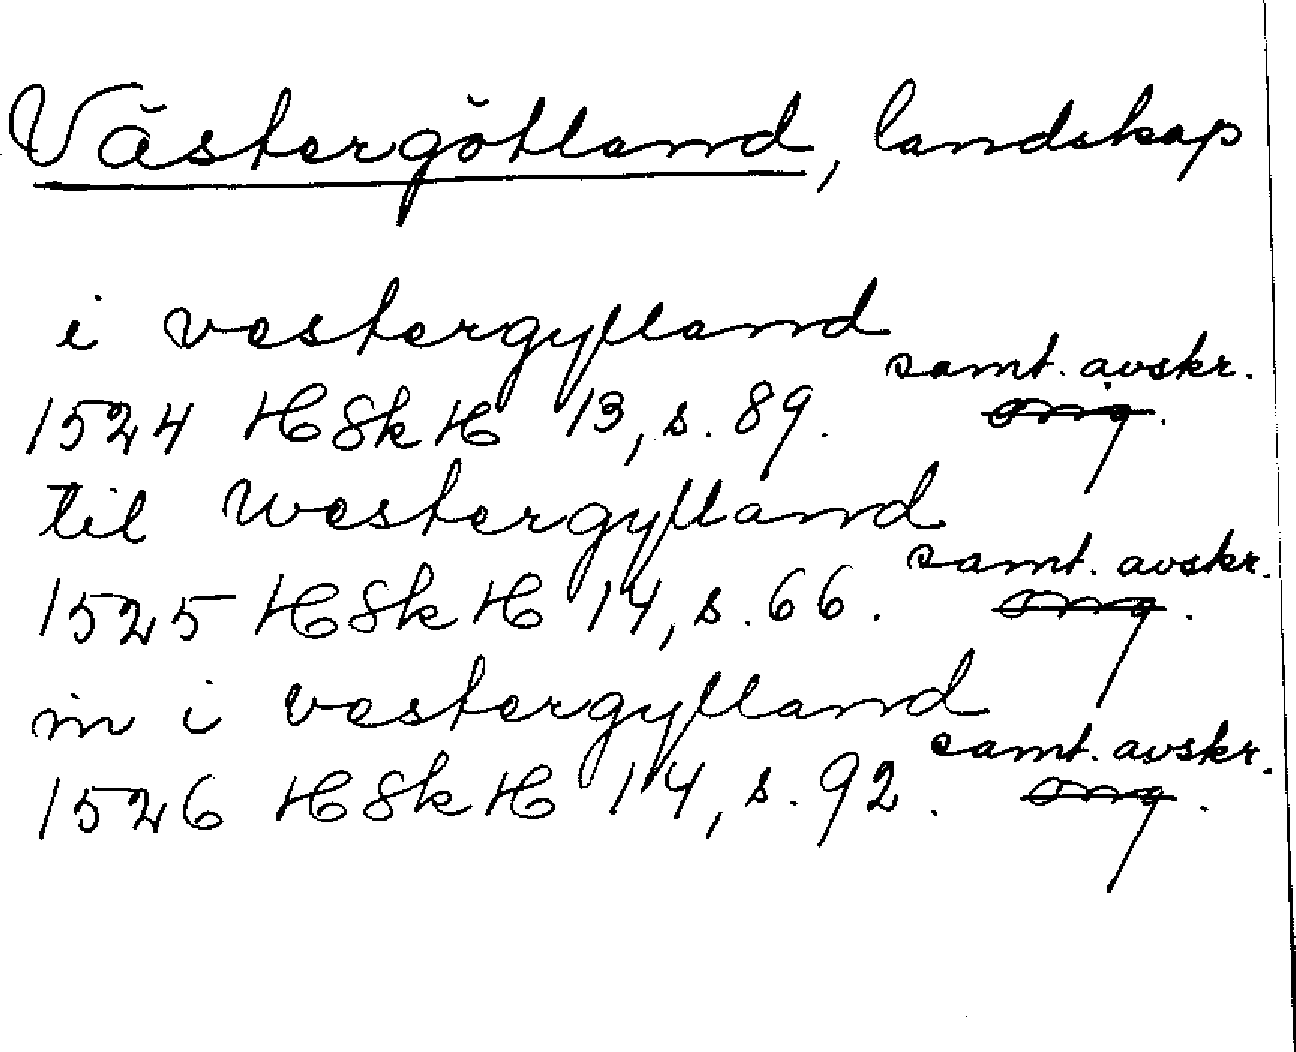 Västergötland, landskap
i vestergylland
samt. avskr.
1524 HSkH 13, s. 89. orig.
til Westergylland
samt. avskr.
1525 HSkH 14, s. 66. orig.
in i vestergylland
samt. avskr.
1526 HSkH 14, s. 92. orig.